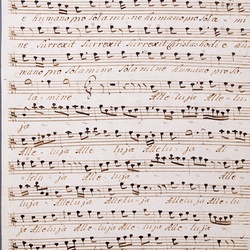 e humano pro solamine humano pro sola
ne surrexit surrexit Christus hodie
mano pro solamine solamine humano pro so
lamine Alleluja Alle
ja
Alleluja Alleluja Alleluja
leluja Alleluja Alle
luja Alleluja Alleluja Alle
ja Alleluja Alleluja Alleluja